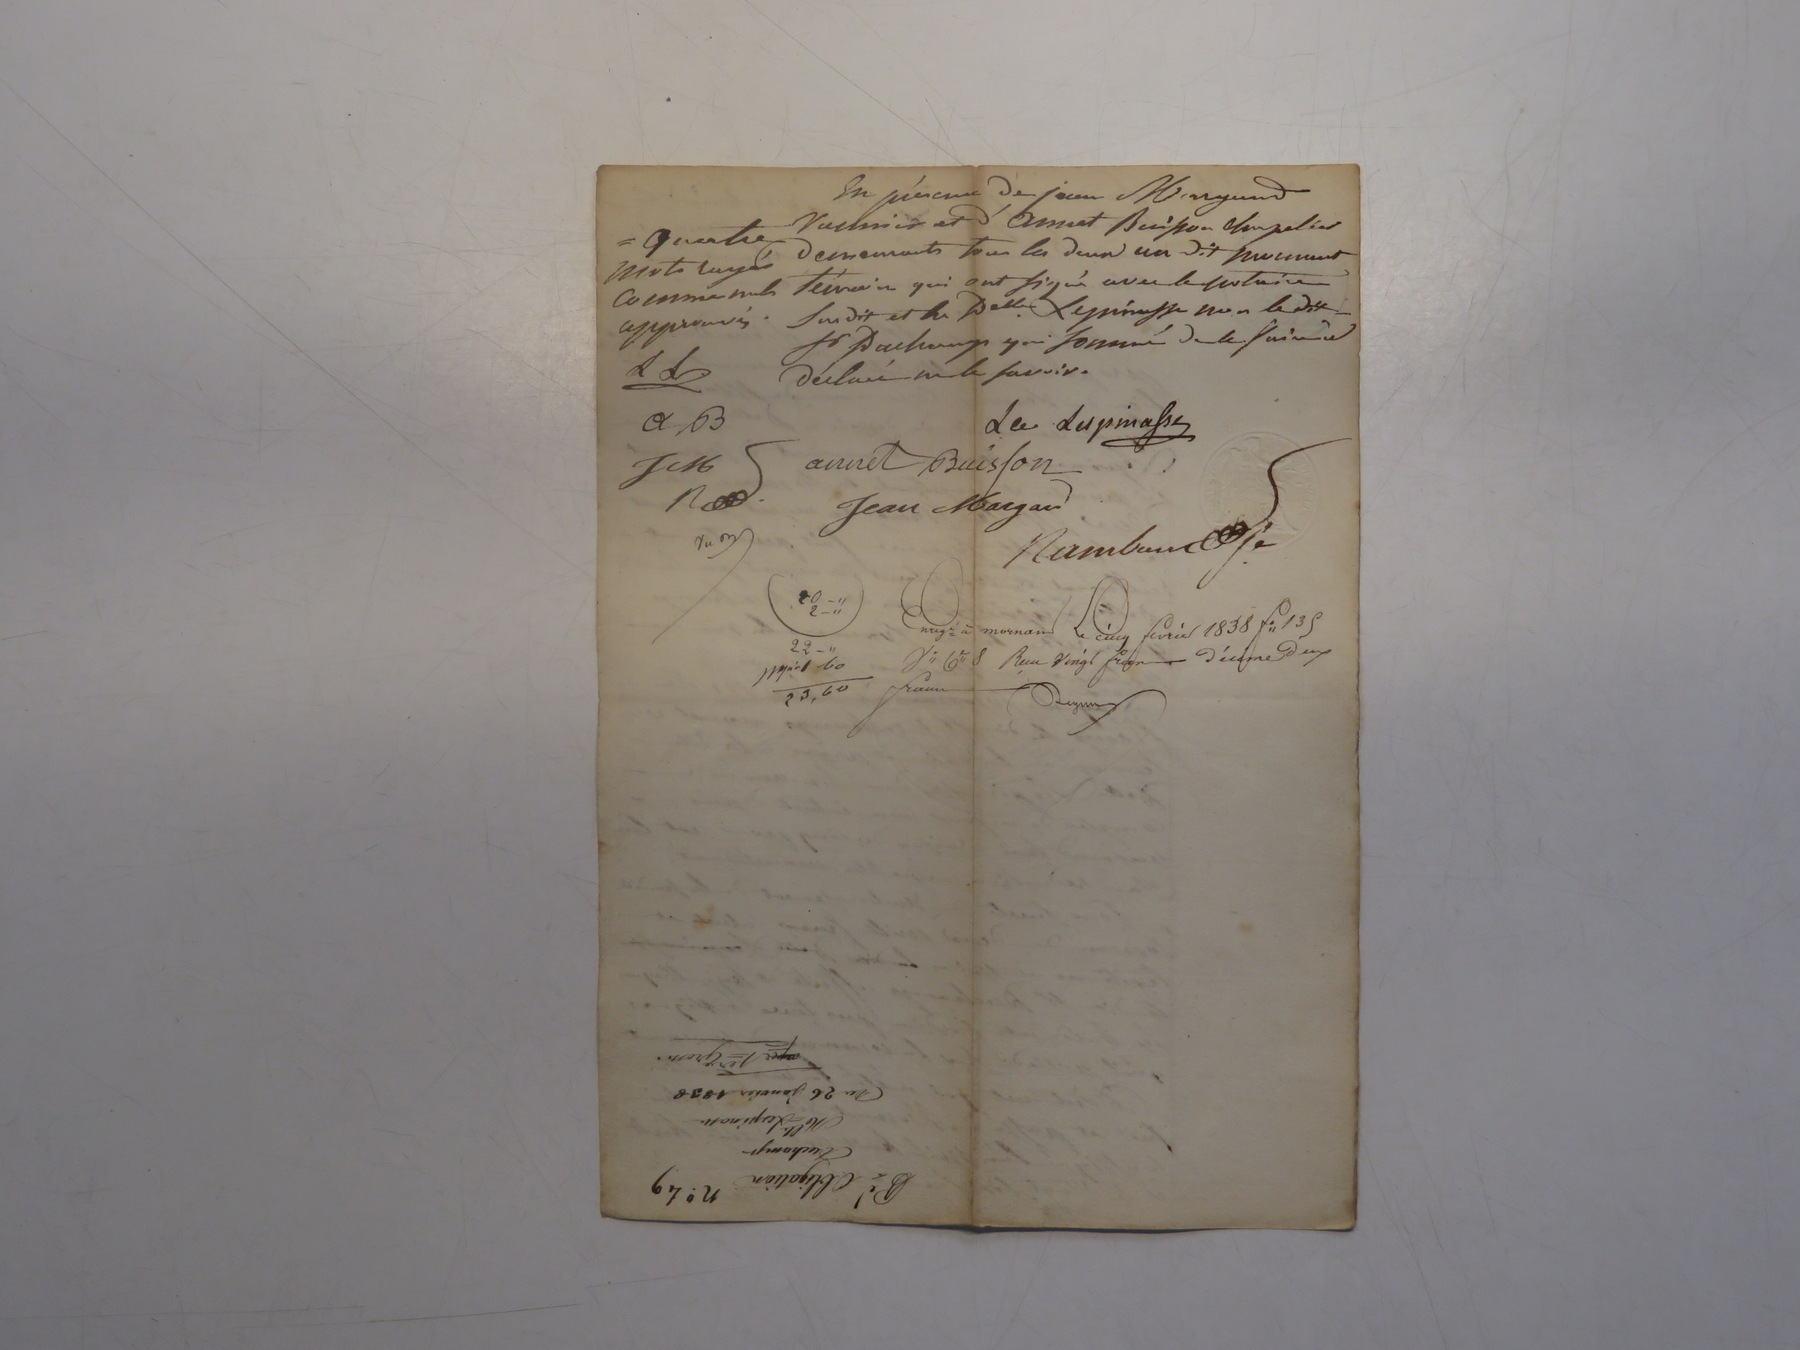 En présence de jean Margand
Vachier et d'annet Buisson chapelier
demeurants tous les deux au dit mornant
témoins qui ont signé avec le notaire
susdit et la Delle Lespinasse non le dit
sr Duchamp qui sommé de le faire a
déclaré ne le savoir.
= quatre
mots rayés
comme nuls
approuvés.
L L
a B
J M
R
La Lespinasse
annet Buisson
Jean Margand
Rambaud
20 - "
2 - "
22 - "
60
23,60
Enregé à mornant Le cinq février 1838 fo 135
Vo Co 8 Reçu vingt francs décime deux
francs
No 49
Bt Obligation
Duchamp
Mlle Lespinasse
Du 26 janvier 1838
1ere Grosse